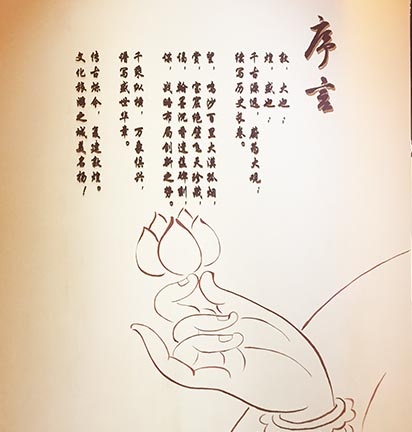 序言
敦，大也；
煌，盛也；
千古源远，蔚为大观；
续写历史长卷。
望，鸣沙百里大漠孤烟，
赏，宝窟绝壁飞天珍藏，
翰墨
战略布局创新之势。
千乘纵横，万象俱兴，
谱写盛世华章。
传古烁今，复建敦煌。
文化旅游之城美名扬！